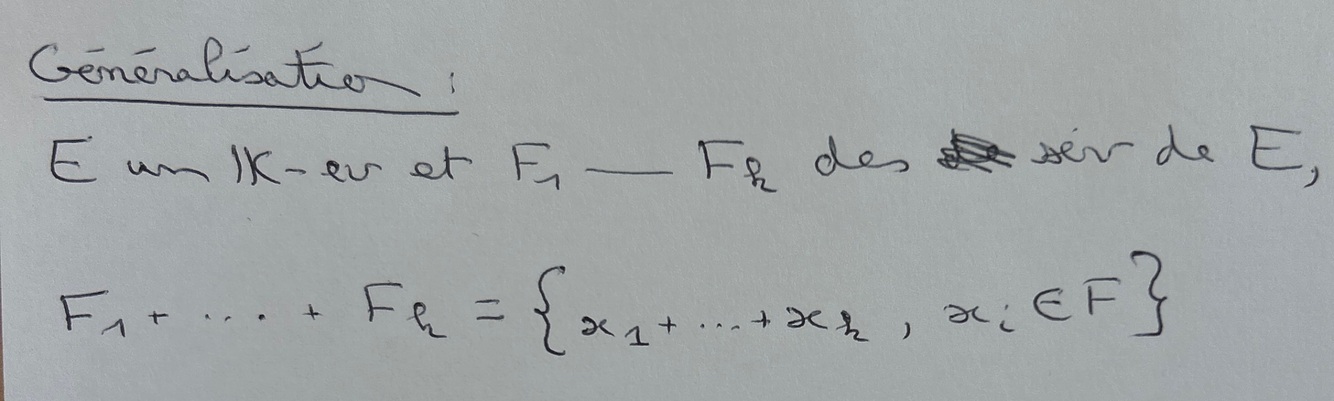 Généralisation :
E un K-ev et F₁ — Fₖ des sev de E,
F₁ + ... + Fₖ = { x₁ + ... + xₖ , xᵢ ∈ F }